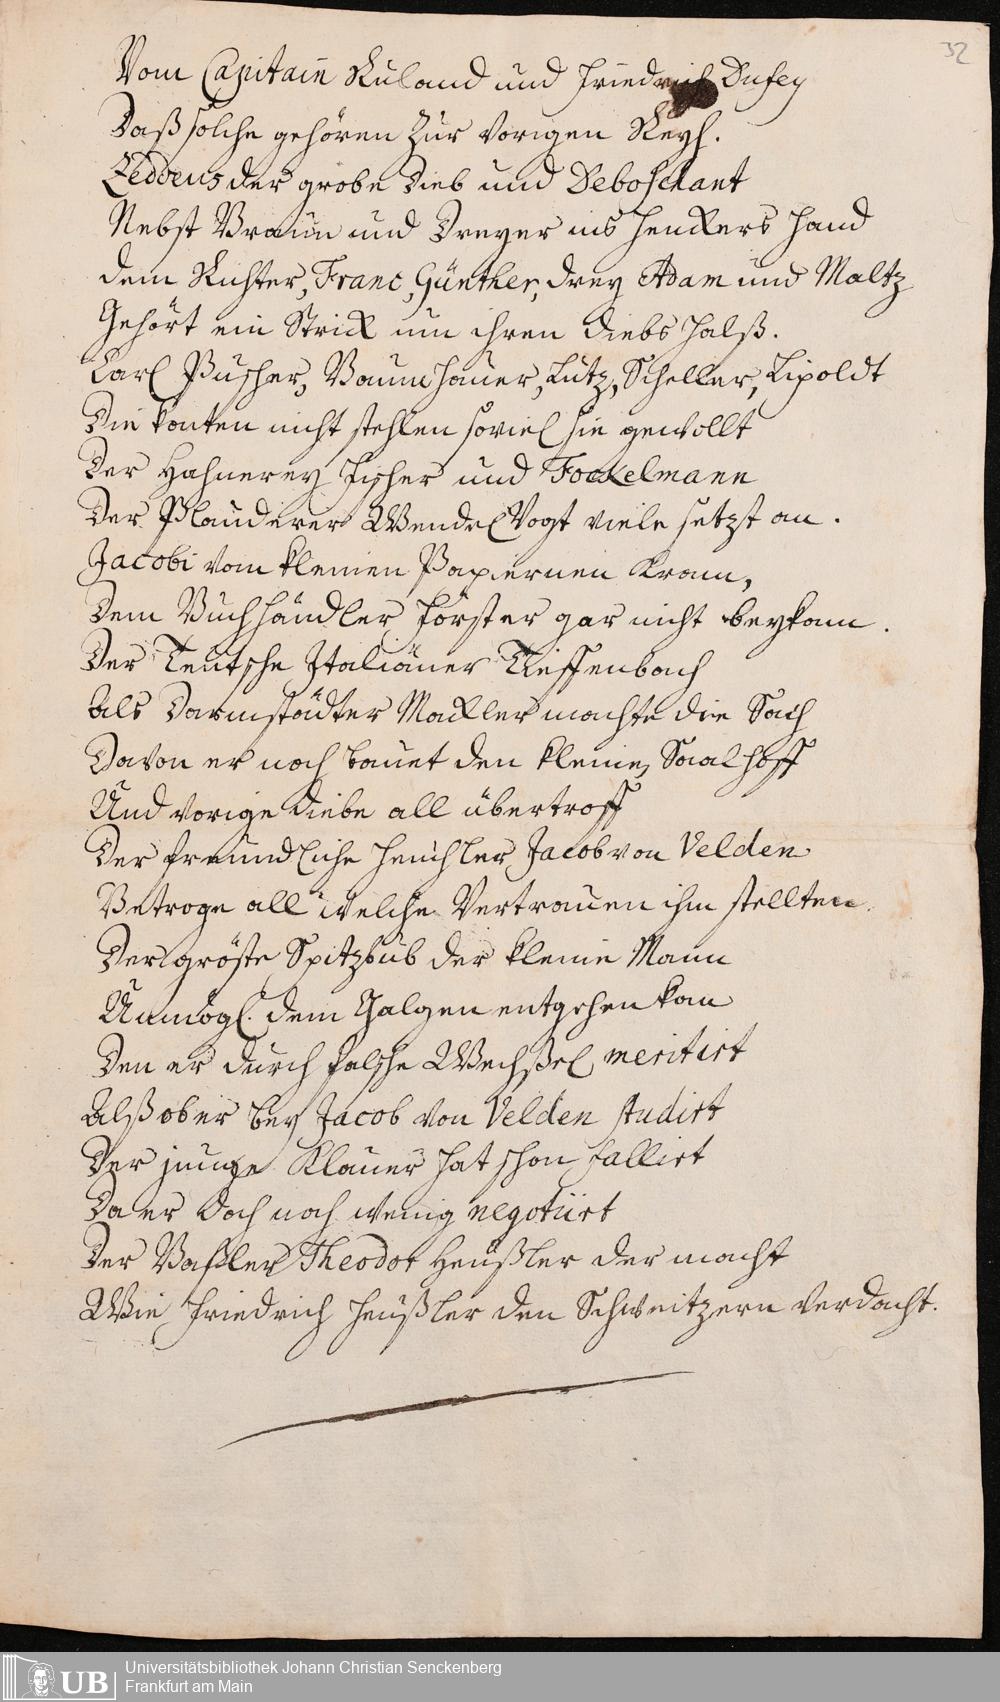 32
Vom Capitain Ruland und Friedrich Dufey
Daß solche gehören zur vorigen Reyh.
Zeddeus der grobe Dieb und Deboschant
Nebst Braun und Dreyer ins Henckers Hand
dem Richter, Franc, Günther, drey Adam und Maltz
Gehört ein Strick um ihren Diebs Halß.
Carl Puscher, Baumhauer, Lutz, Scheller, Lipoldt
Die konten nicht stehlen soviel sie gewollt
Der Hahnerey Fischer und Fockelmann
Der Plauderer Wendel Vogt viele setzst an.
Jacobi vom kleinen Papiernen Kram,
Dem Buchhändler Förster gar nicht beykam.
Der Teutsche Italiäner Tieffenbach
Als Darmstädter Mackler machte die Sach
Davon er noch bauet den kleinen Saalhoff
Und vorige Diebe all übertroff
Der freundliche Heuchler Jacob von Velden
Betroge all welche Vertrauen ihm stellten.
Der gröste Spitzbub der kleine Mann
Unmögl. dem Galgen entgehen kan
Den er durch falsche Wechßel meritirt
Alß ober bey Jacob von Velden studirt
Der junge Klauer hat schon fallirt
Da er doch noch wenig negotiirt
Der Baßler Theodor Heußler der macht
Wie Friedrich Heußler den Schweitzern Verdacht.
UB
Universitätsbibliothek Johann Christian Senckenberg
Frankfurt am Main